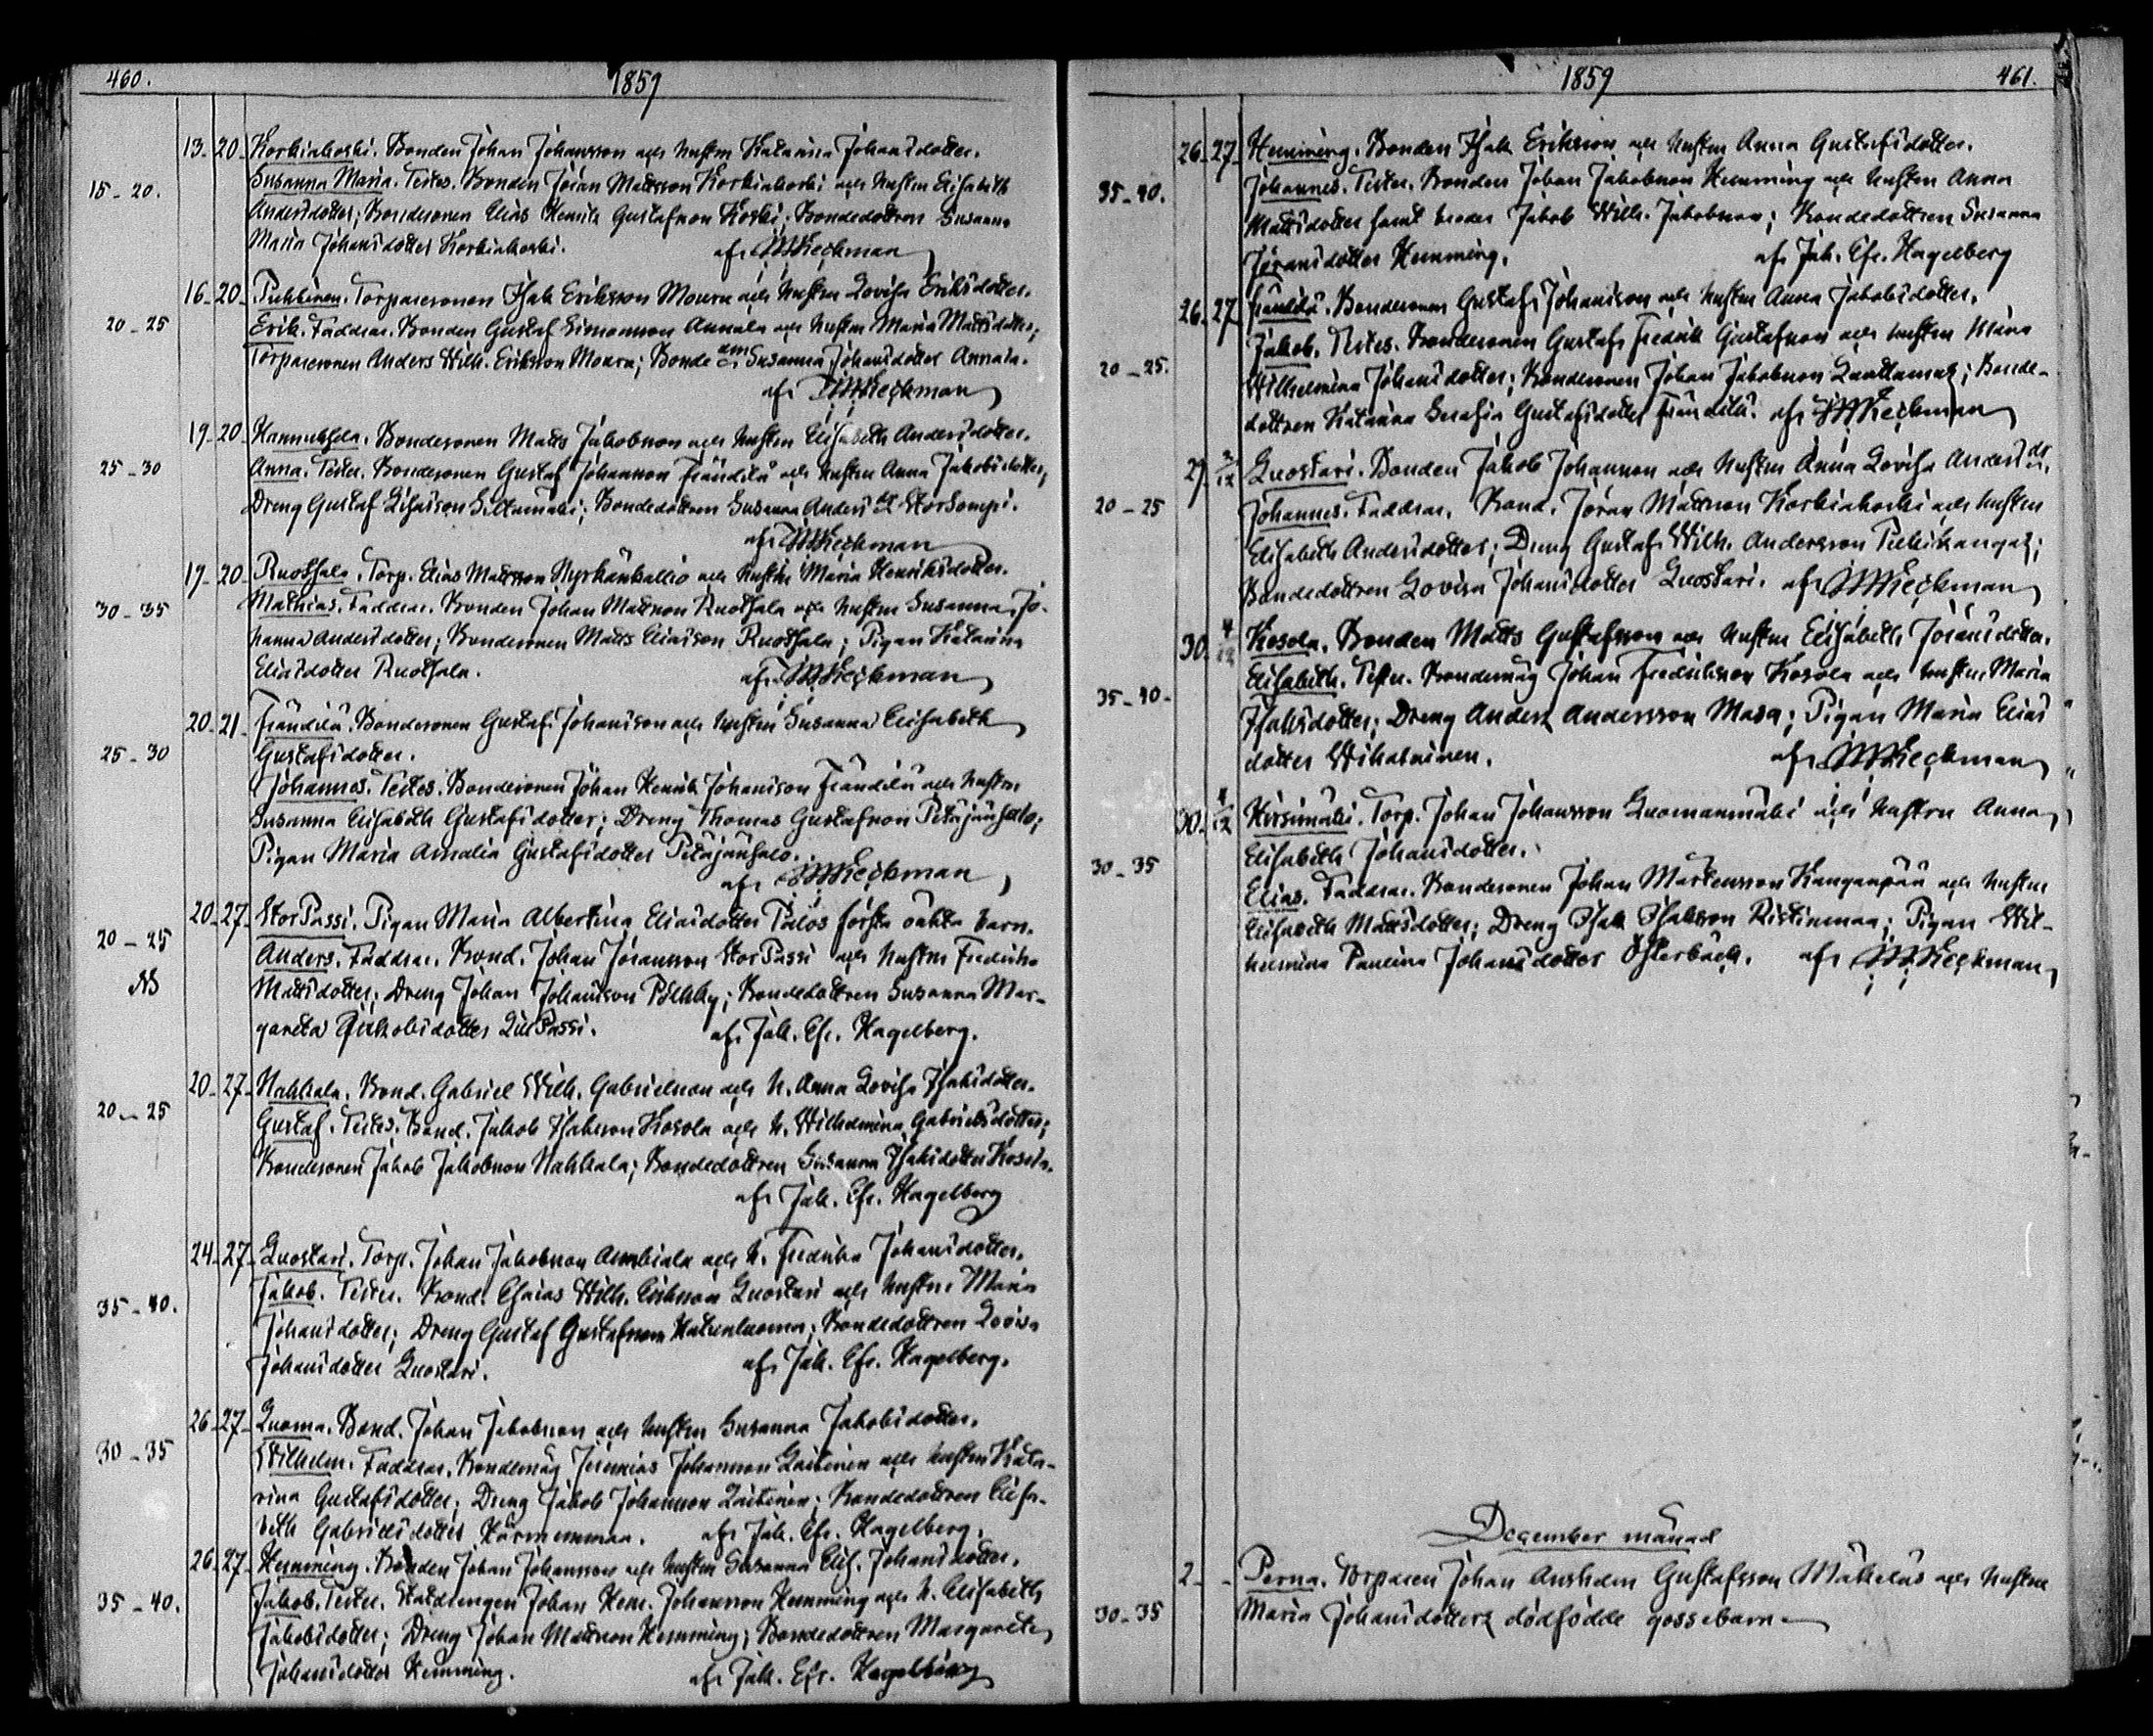 460. 1859
13. 20. Korkiakoski. Bonden Johan Johansson och hustrun Katarina Johansdotter.
15-20. Susanna Maria. Testes. Bonden Jöran Mattsson Korkiakoski och hustrun Elisabeth
Andersdotter; Bondesonen Elias Henrik Gustafsson Koski; Bondedottren Susanna
Maria Johansdotter Korkiakoski. af
16-20. Torparesonen Isak Eriksson Moura och hustrun Lovisa Eriksdotter.
20-25 Erik. Faddrar. Bonden Gustaf Simonsson Annala och hustrun Maria Mattsdotter;
Torparesonen Anders Wilh. Eriksson Moura; Bonde Susanna Johansdotter Annala.
af
19-20. Hannuksela. Bondesonen Matts Jakobsson och hustrun Elisabeth Andersdotter.
25-30 Anna. Testes. Bondesonen Gustaf Johansson Frändilä och hustrun Anna Jakobsdotter;
Dreng Gustaf Siltamäki; Bondedottren Susanna Anders dr StorSompi.
af
19-20 Ruotsala. Torp. Elias Mattsson Nyrhänkallio och hustrun Maria Henriksdotter.
30-35 Mathias. Faddrar. Bonden Johan Mattsson Ruotsala och hustrun Susanna Jo-
hanna Andersdotter; Bondesonen Matts Eliasson Ruotsala; Pigan Katarina
Eliasdotter Ruotsala. af
20-21. Frändilä. Bondesonen Gustaf Johansson och hustrun Susanna Elisabeth
25-30 Gustafsdotter.
Johannes. Testes. Bondesonen Johan Henrik Johansson Frändilä och hustrun
Susanna Elisabeth Gustafsdotter; Dreng Thomas Gustafsson Petäjänsalo;
Pigan Maria Amalia Gustafsdotter Petäjänsalo.
af
20-27. StorPassi. Pigan Maria Albertina Eliasdotter Talos första oäkta barn.
20-25 Anders. Faddrar. Bond. Johan Jöransson StorPassi och hustrun Fredrika
Mattsdotter; Dreng Johan Johansson Pölkky; Bondedottren Susanna Mar-
gareta Jakobsdotter LillPassi. af Joh. Efr. Hagelberg.
20-27- Nahkala. Bond. Gabriel Wilh. Gabrielsson och h. Anna Lovisa Isaksdotter.
20-25 Gustaf. Testes. Bond. Jakob Isaksson Kosola och h. Wilhelmina Gabrielsdotter;
Bondesonen Jakob Jakobsson Nahkala; Bondedottren Susanna Isaksdotter Kosola.
af Joh. Efr. Hagelberg
24-27- Luostari. Torp. Johan Jakobsson och h. Fredrika Johansdotter.
35-40. Jakob. Testes. Bond. Esaias Wilh. Eriksson Luostari och hustrun Maria
Johansdotter; Dreng Gustaf Gustafsson; Bondedottren Lovisa
Johansdotter Luostari. af Joh. Efr. Hagelberg.
26-27- Luoma. Bond. Johan Jakobsson och hustrun Susanna Jakobsdotter.
30-35 Wilhelm. Faddrar. Bondemåg Jeremias Johansson Laitinen och hustrun Kata-
rina Gustafsdotter; Dreng Jakob Johansson Laitinen; Bondedottren Elisa-
beth Gabrielsdotter. af Joh. Efr. Hagelberg.
26-27- Hemming. Bonden Johan Johansson och hustrun Susanna Elis. Johansdotter.
35-40. Jakob. Testes. Johan Henr. Johansson Hemming och h. Elisabeth
Jakobsdotter; Dreng Johan Mattsson Hemming; Bondedottren Margareta
Johansdotter Hemming. af Joh. Efr. Hagelberg
1859 461.
26. 27. Hemming. Bonden Isak Eriksson och hustrun Anna Gustafsdotter.
35-40. Johannes. Testes. Bonden Johan Jakobsson Hemming och hustrun Anna
Mattsdotter samt broder Jakob Wilh. Jakobsson; Bondedottren Susanna
Jöransdotter Hemming. af Joh. Efr. Hagelberg
26. 27 Frändilä. Bondesonen Gustaf Johansson och hustrun Anna Jakobsdotter.
20-25. Jakob. Testes. Bondesonen Gustaf Fredrik Gustafsson och hustrun Maria
Wilhelmina Johansdotter; Bondesonen Johan Jakobsson; Bonde-
dottren Katarina Serafia Gustafsdotter Frändilä. af
29. 2/12 Luostari. Bonden Jakob Johansson och hustrun Anna Lovisa Anders dr.
20-25 Johannes. Faddrar. Bond. Jöran Mattsson Korkiakoski och hustrun
Elisabeth Andersdotter; Dreng Gustaf Wilh. Andersson;
Bondedottren Lovisa Johansdotter Luostari. af
30. 4/12 Kosola. Bonden Matts Gustafsson och hustrun Elisabeth Jöransdotter.
35-40- Elisabeth. Testes. Bondemåg Johan Fredriksson Kosola och hustrun Maria
Isaksdotter; Dreng Anders Andersson Masa; Pigan Maria Elias
dotter Wihalainen. af
30. 4/12 Hirsimäki. Torp. Johan Johansson Luomanmäki och hustrun Anna
30-35 Elisabeth Johansdotter.
Elias. Faddrar. Bondesonen Johan Mårtensson Kangaspää och hustrun
Elisabeth Mattsdotter; Dreng Isak Isaksson Ristinmaa; Pigan Wil-
helmina Paulina Johansdotter Österback. af
December månad
2- - Perna. Torparen Johan Anshelm Gustafsson Mäkeläs och hustrun
30-35 Maria Johansdotters dödfödde gossebarn